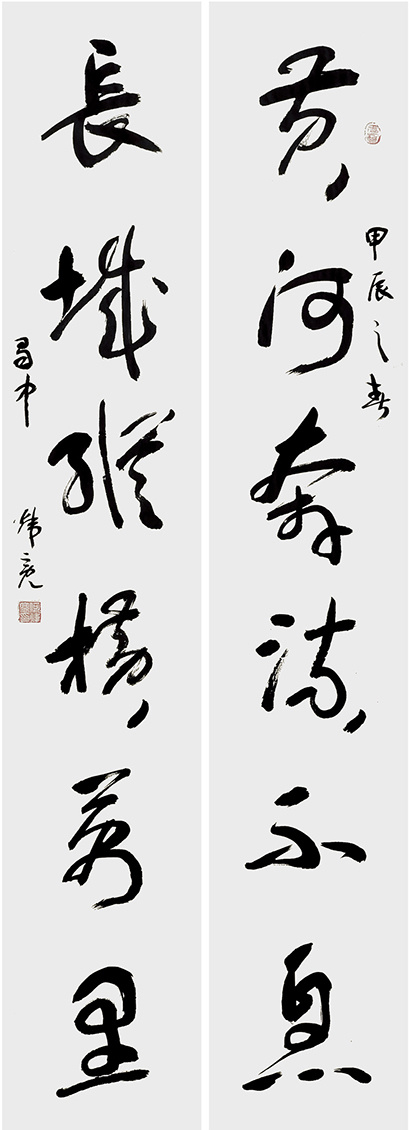 黄河奔流不息
甲辰之春
長城縱橫萬里
蜀中